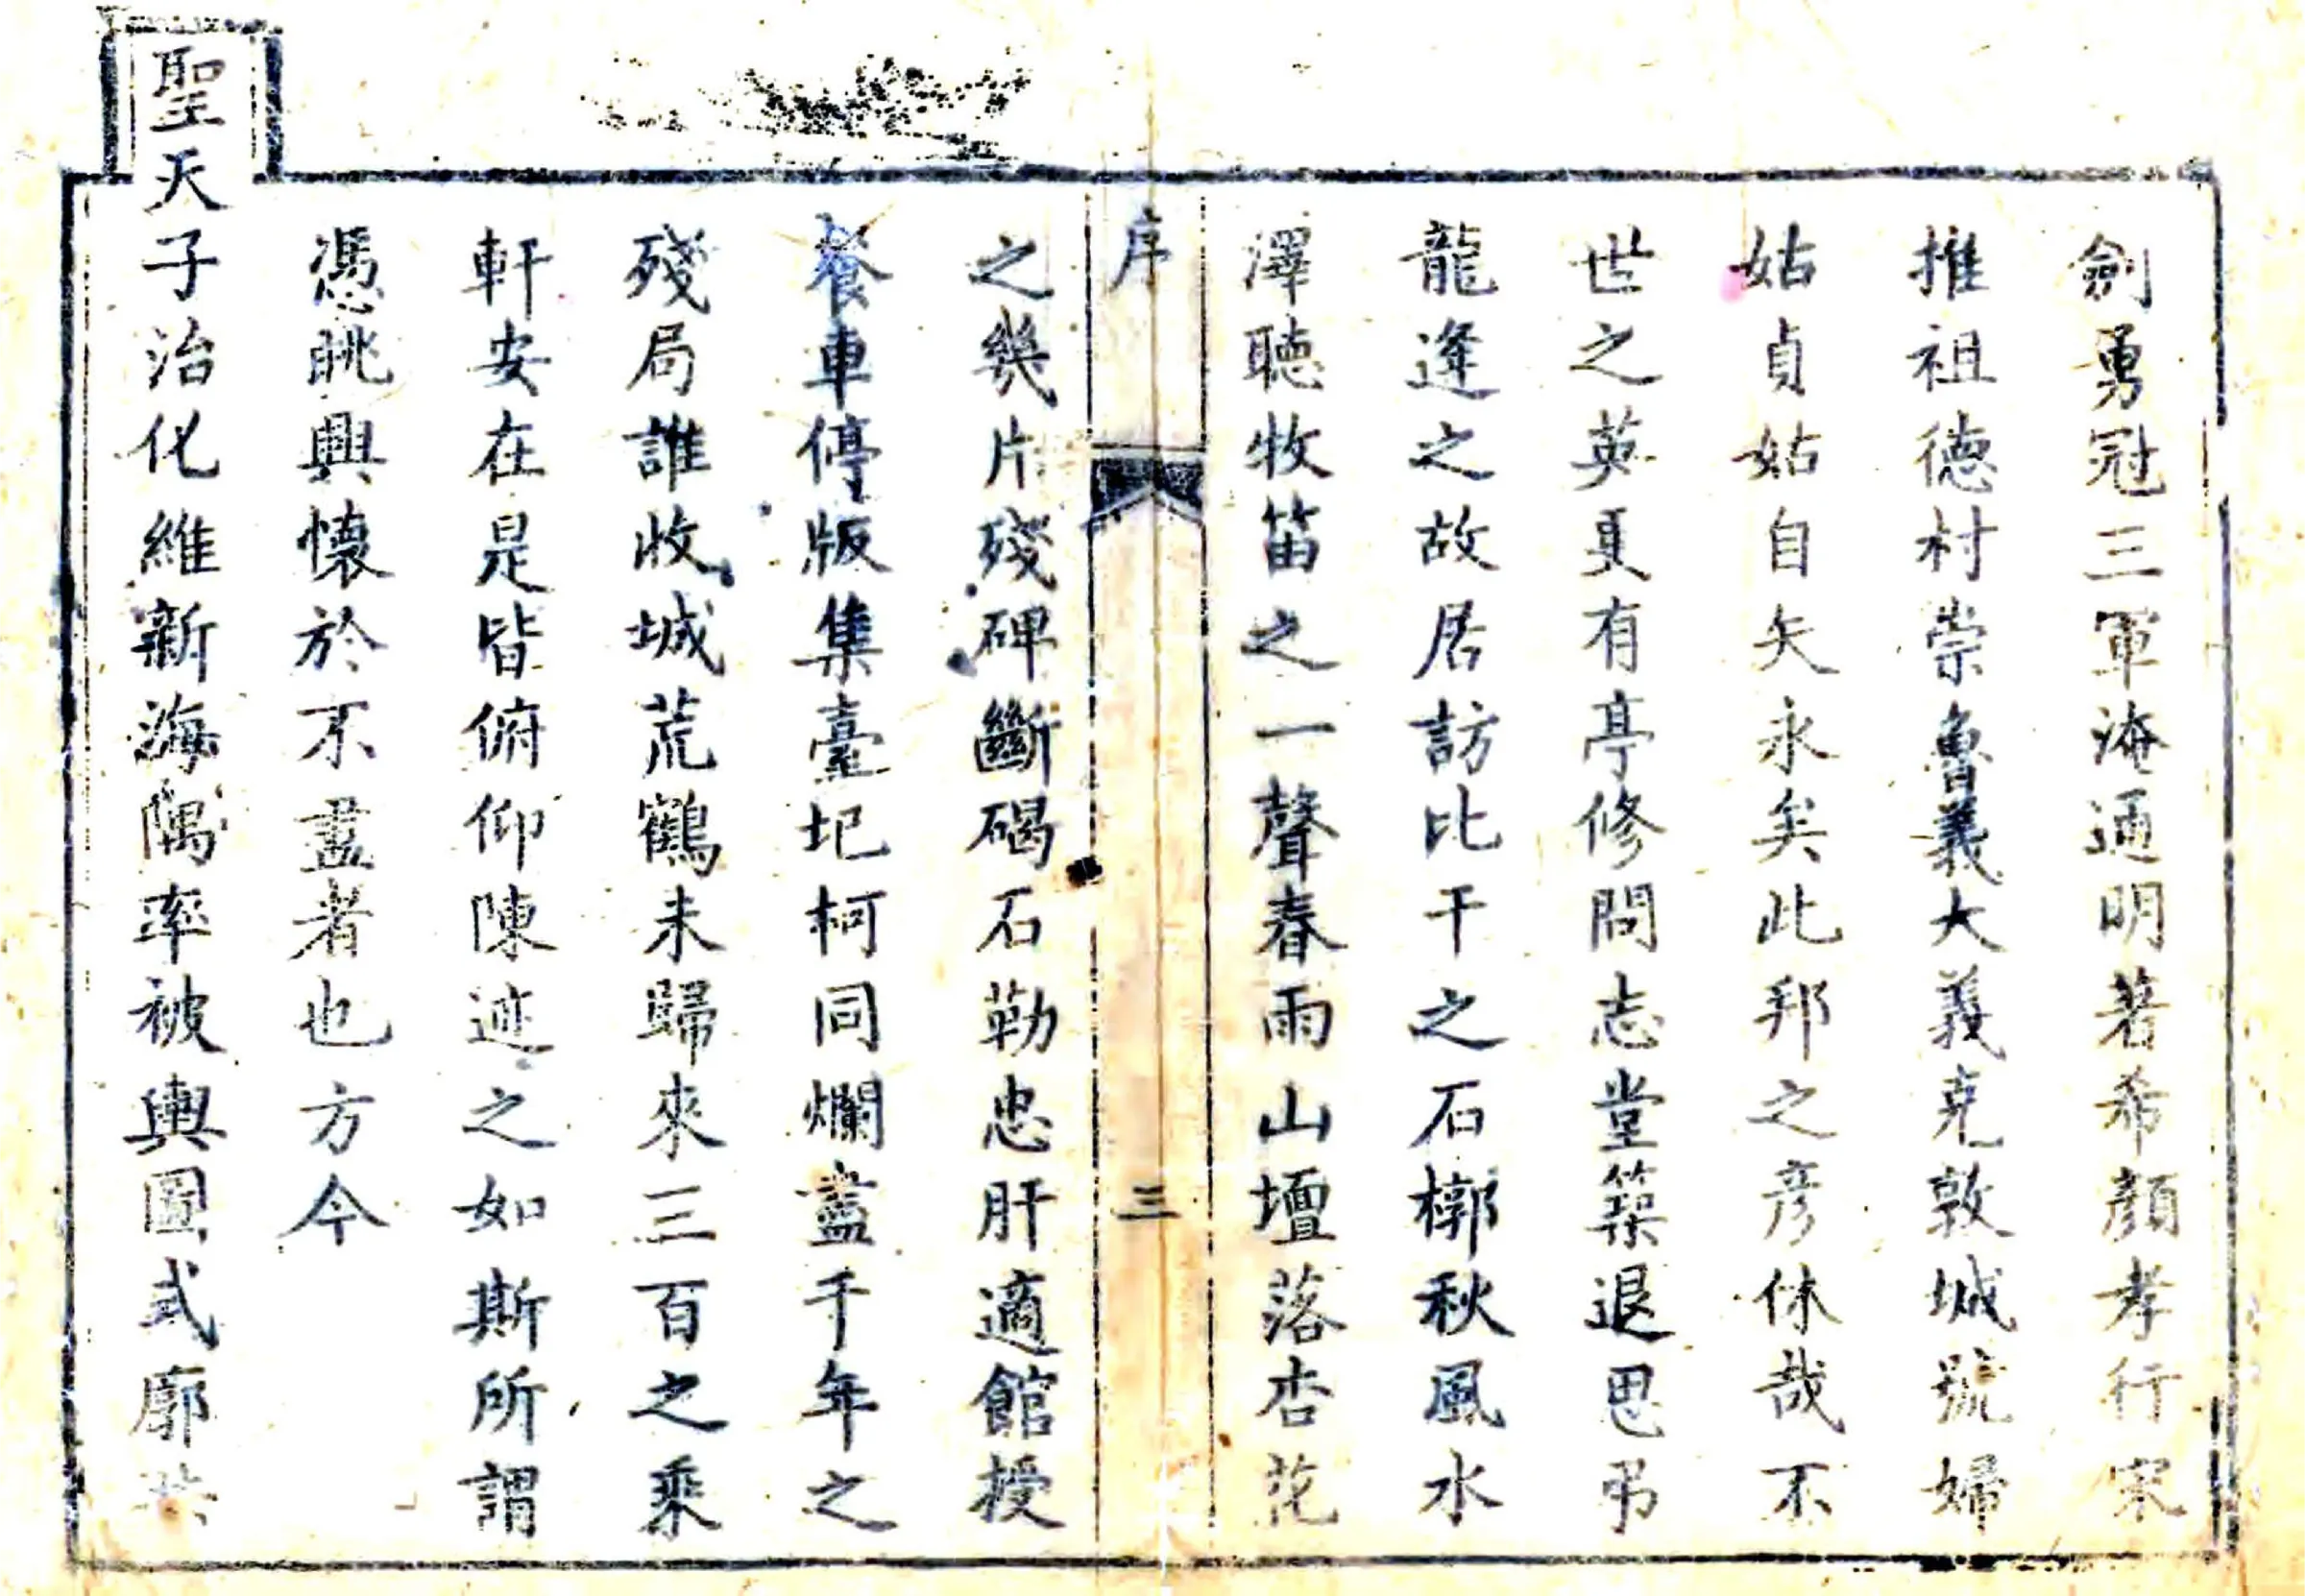 劍勇冠三軍淹通明著希顔孝行宋
推祖德村崇魯義大義克敦城號婦
姑貞姑自矢永矣此邦之彦休哉不
世之英更有亭修問志堂築退思弔
龍逢之故居訪比干之石槨秋風水
澤聽牧笛之一聲春雨山壇落杏花
序
三
之幾片殘碑斷碣石勒忠肝適館授
餐車停版集臺圮柯同爛盡千年之
殘局誰收城荒鶴未歸來三百之乘
軒安在是皆俯仰陳迹之如斯所謂
憑眺興懷於不盡者也方今
聖天子治化維新海隅率被輿圖式廓